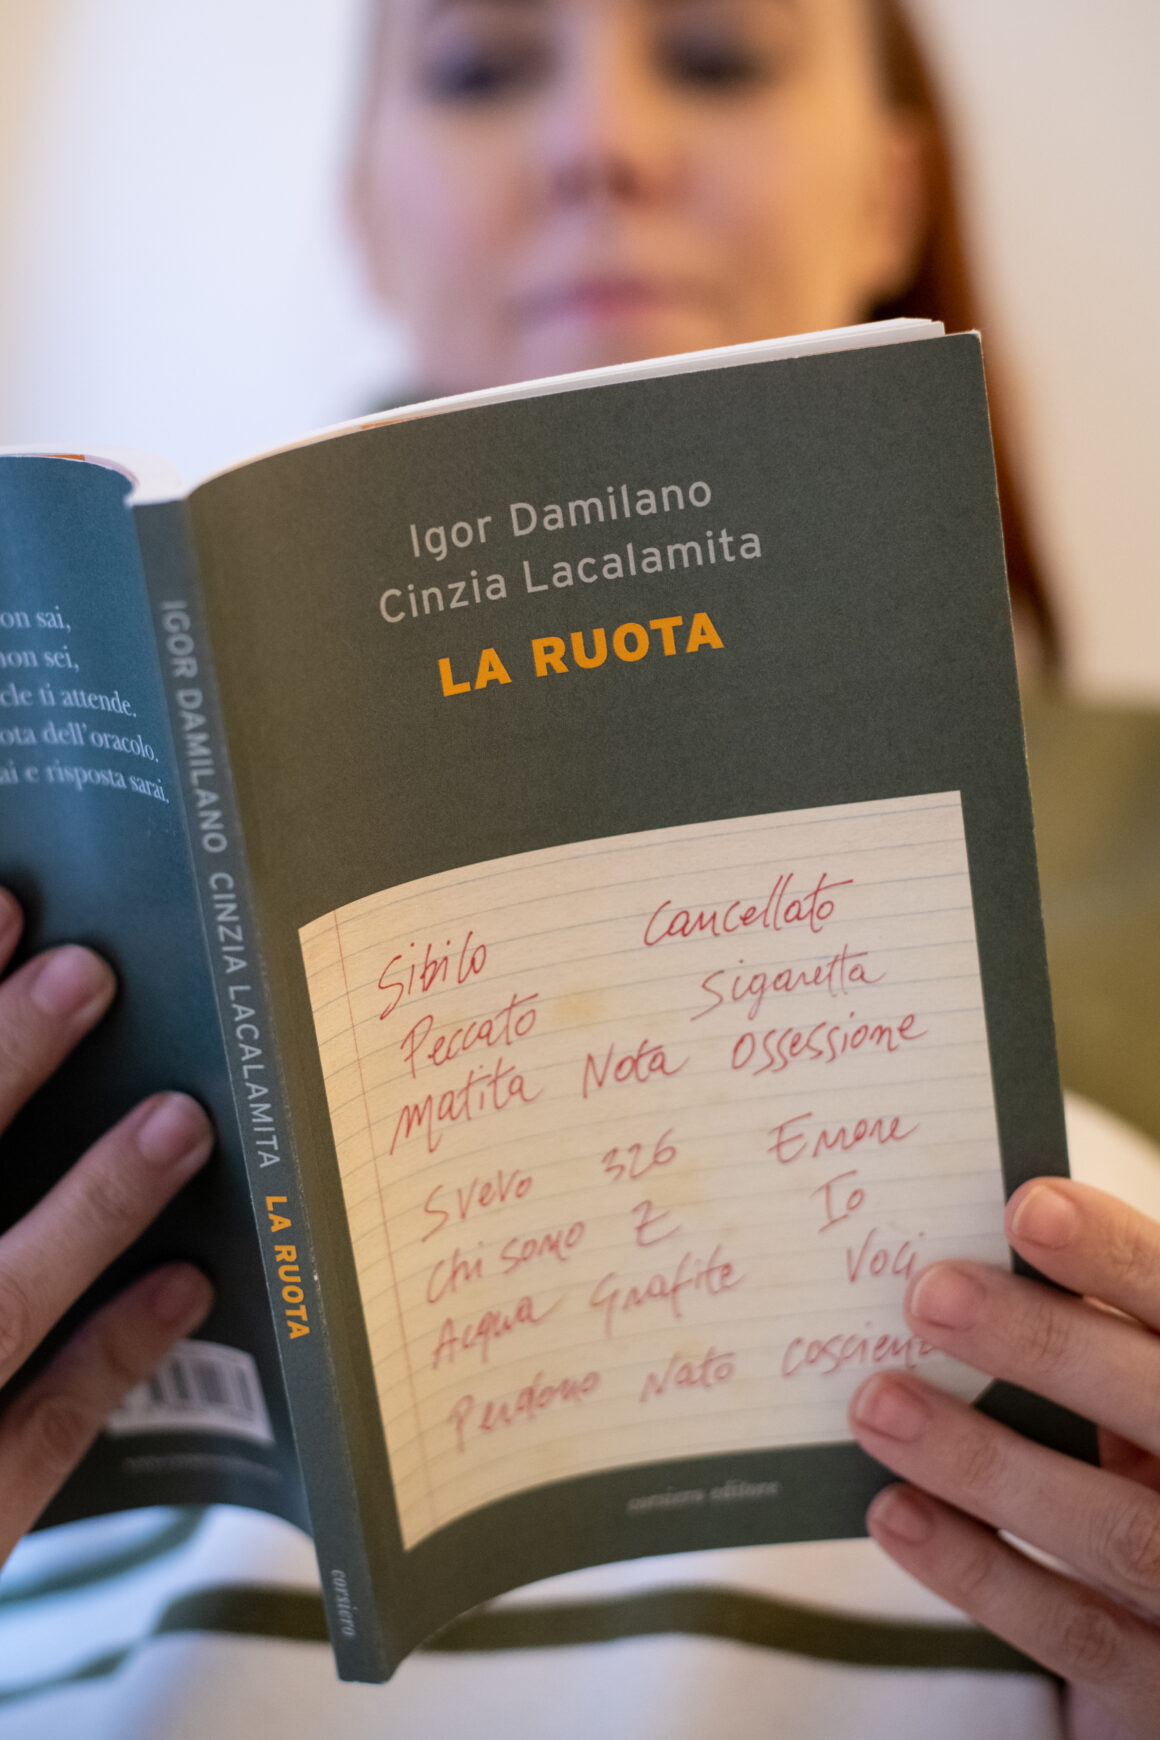 Igor Damilano
Cinzia Lacalamita
LA RUOTA
Sibilo Cancellato
Peccato Sigaretta
Matita Nota Ossessione
Svevo 326 Errore
Chi sono Z Io
Acqua Grafite Voci
Perdono Nato
corsiero editore
IGOR DAMILANO CINZIA LACALAMITA LA RUOTA
corsiero
on sai,
non sei,
cle ti attende.
ota dell'oracolo.
ai e risposta sarai.